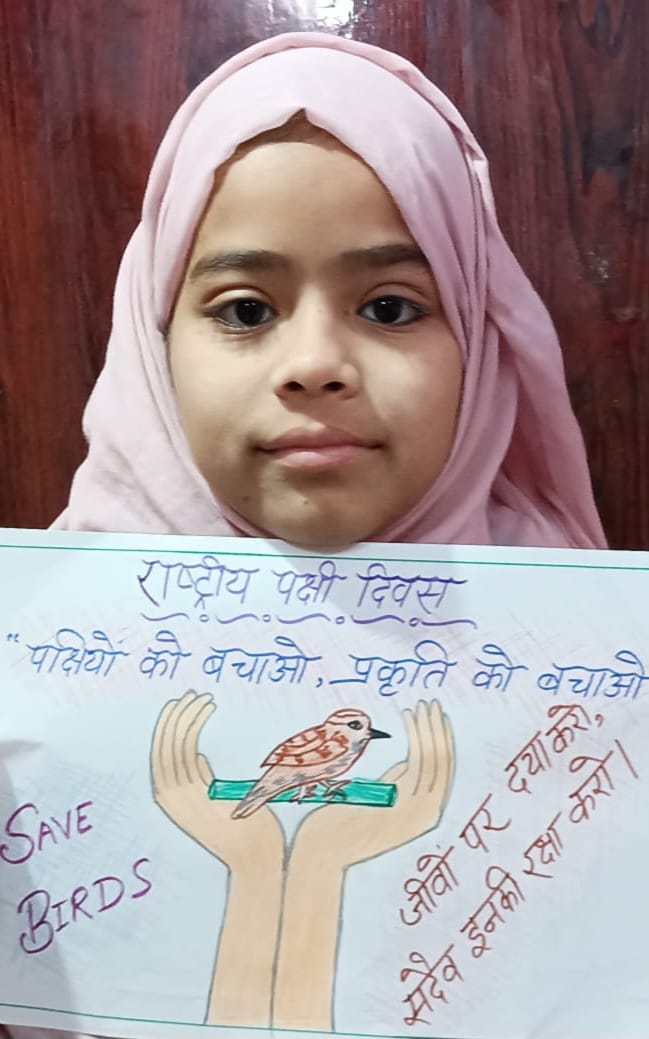 राष्ट्रीय पक्षी दिवस
"पक्षियों को बचाओ, प्रकृति को बचाओ
SAVE
BIRDS
जीवों पर दया करो,
सदैव इनकी रक्षा करो।